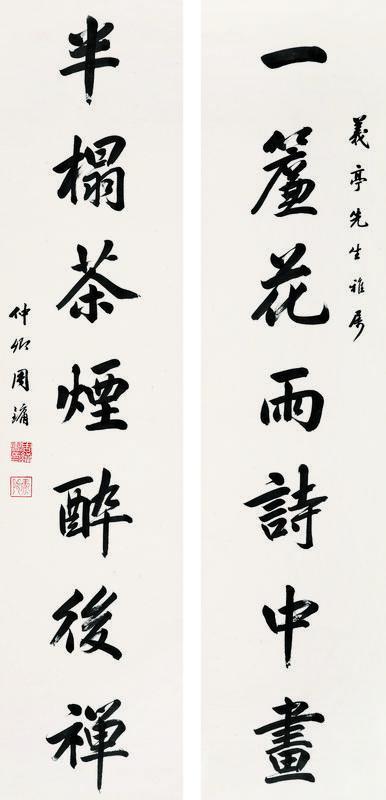 義亭先生雅屬
一簾花雨詩中畫
半榻茶煙醉後禪
仲卿周鏞